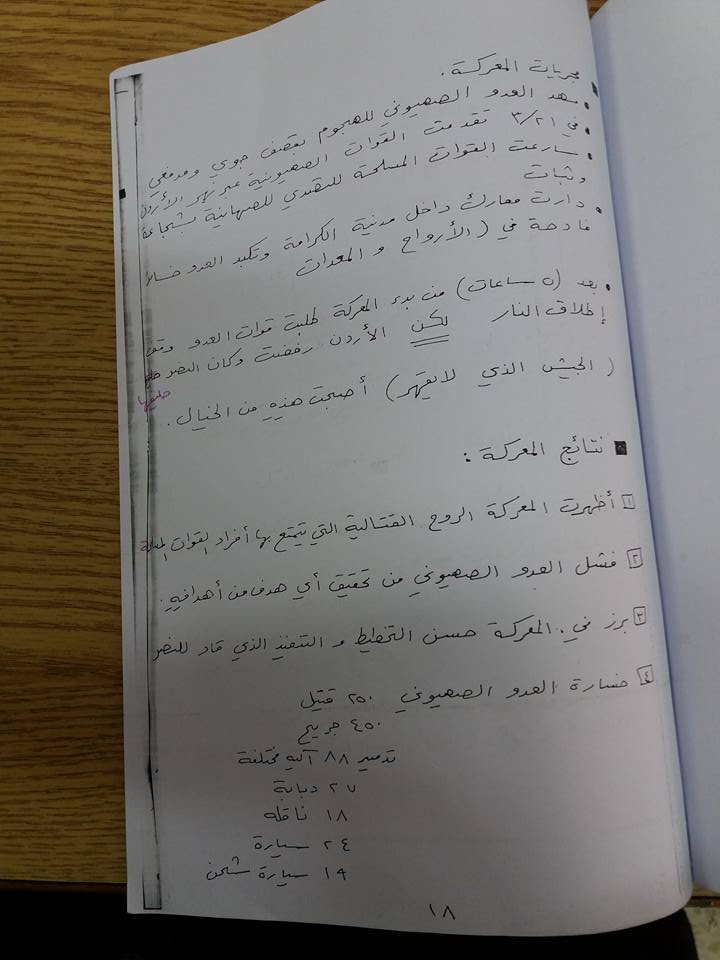 مجريات المعركة .
مهد العدو الصهيوني للهجوم بقصف جوي ومدفعي
في ٣/٢١ تقدمت القوات الصهيونية عبر نهر الأردن
سارعت القوات المسلحة للتصدي للصهاينة بشجاعة
وثبات
دارت معارك داخل مدينة الكرامة وتكبد العدو خسائر
فادحة في ( الأرواح و المعدات
بعد (٥ ساعات) من بدء المعركة طلبت قوات العدو وقف
إطلاق النار لكن الأردن رفضت وكان النصر
حليفها
( الجيش الذي لا يقهر ) أصبحت هذه من الخيال .
نتائج المعركة :
١ أظهرت المعركة الروح القتالية التي يتمتع بها أفراد القوات المسلحة
٢ فشل العدو الصهيوني من تحقيق أي هدف من أهدافه .
٣ برز في . المعركة حسن التخطيط و التنفيذ الذي قاد للنصر
٤ خسارة العدو الصهيوني ٢٥٠ قتيل
٤٥٠ جريح
تدمير ٨٨ آليه مختلفة
٢٧ دبابة
١٨ ناقله
٢٤ سيارة
١٩ سيارة شحن
١٨